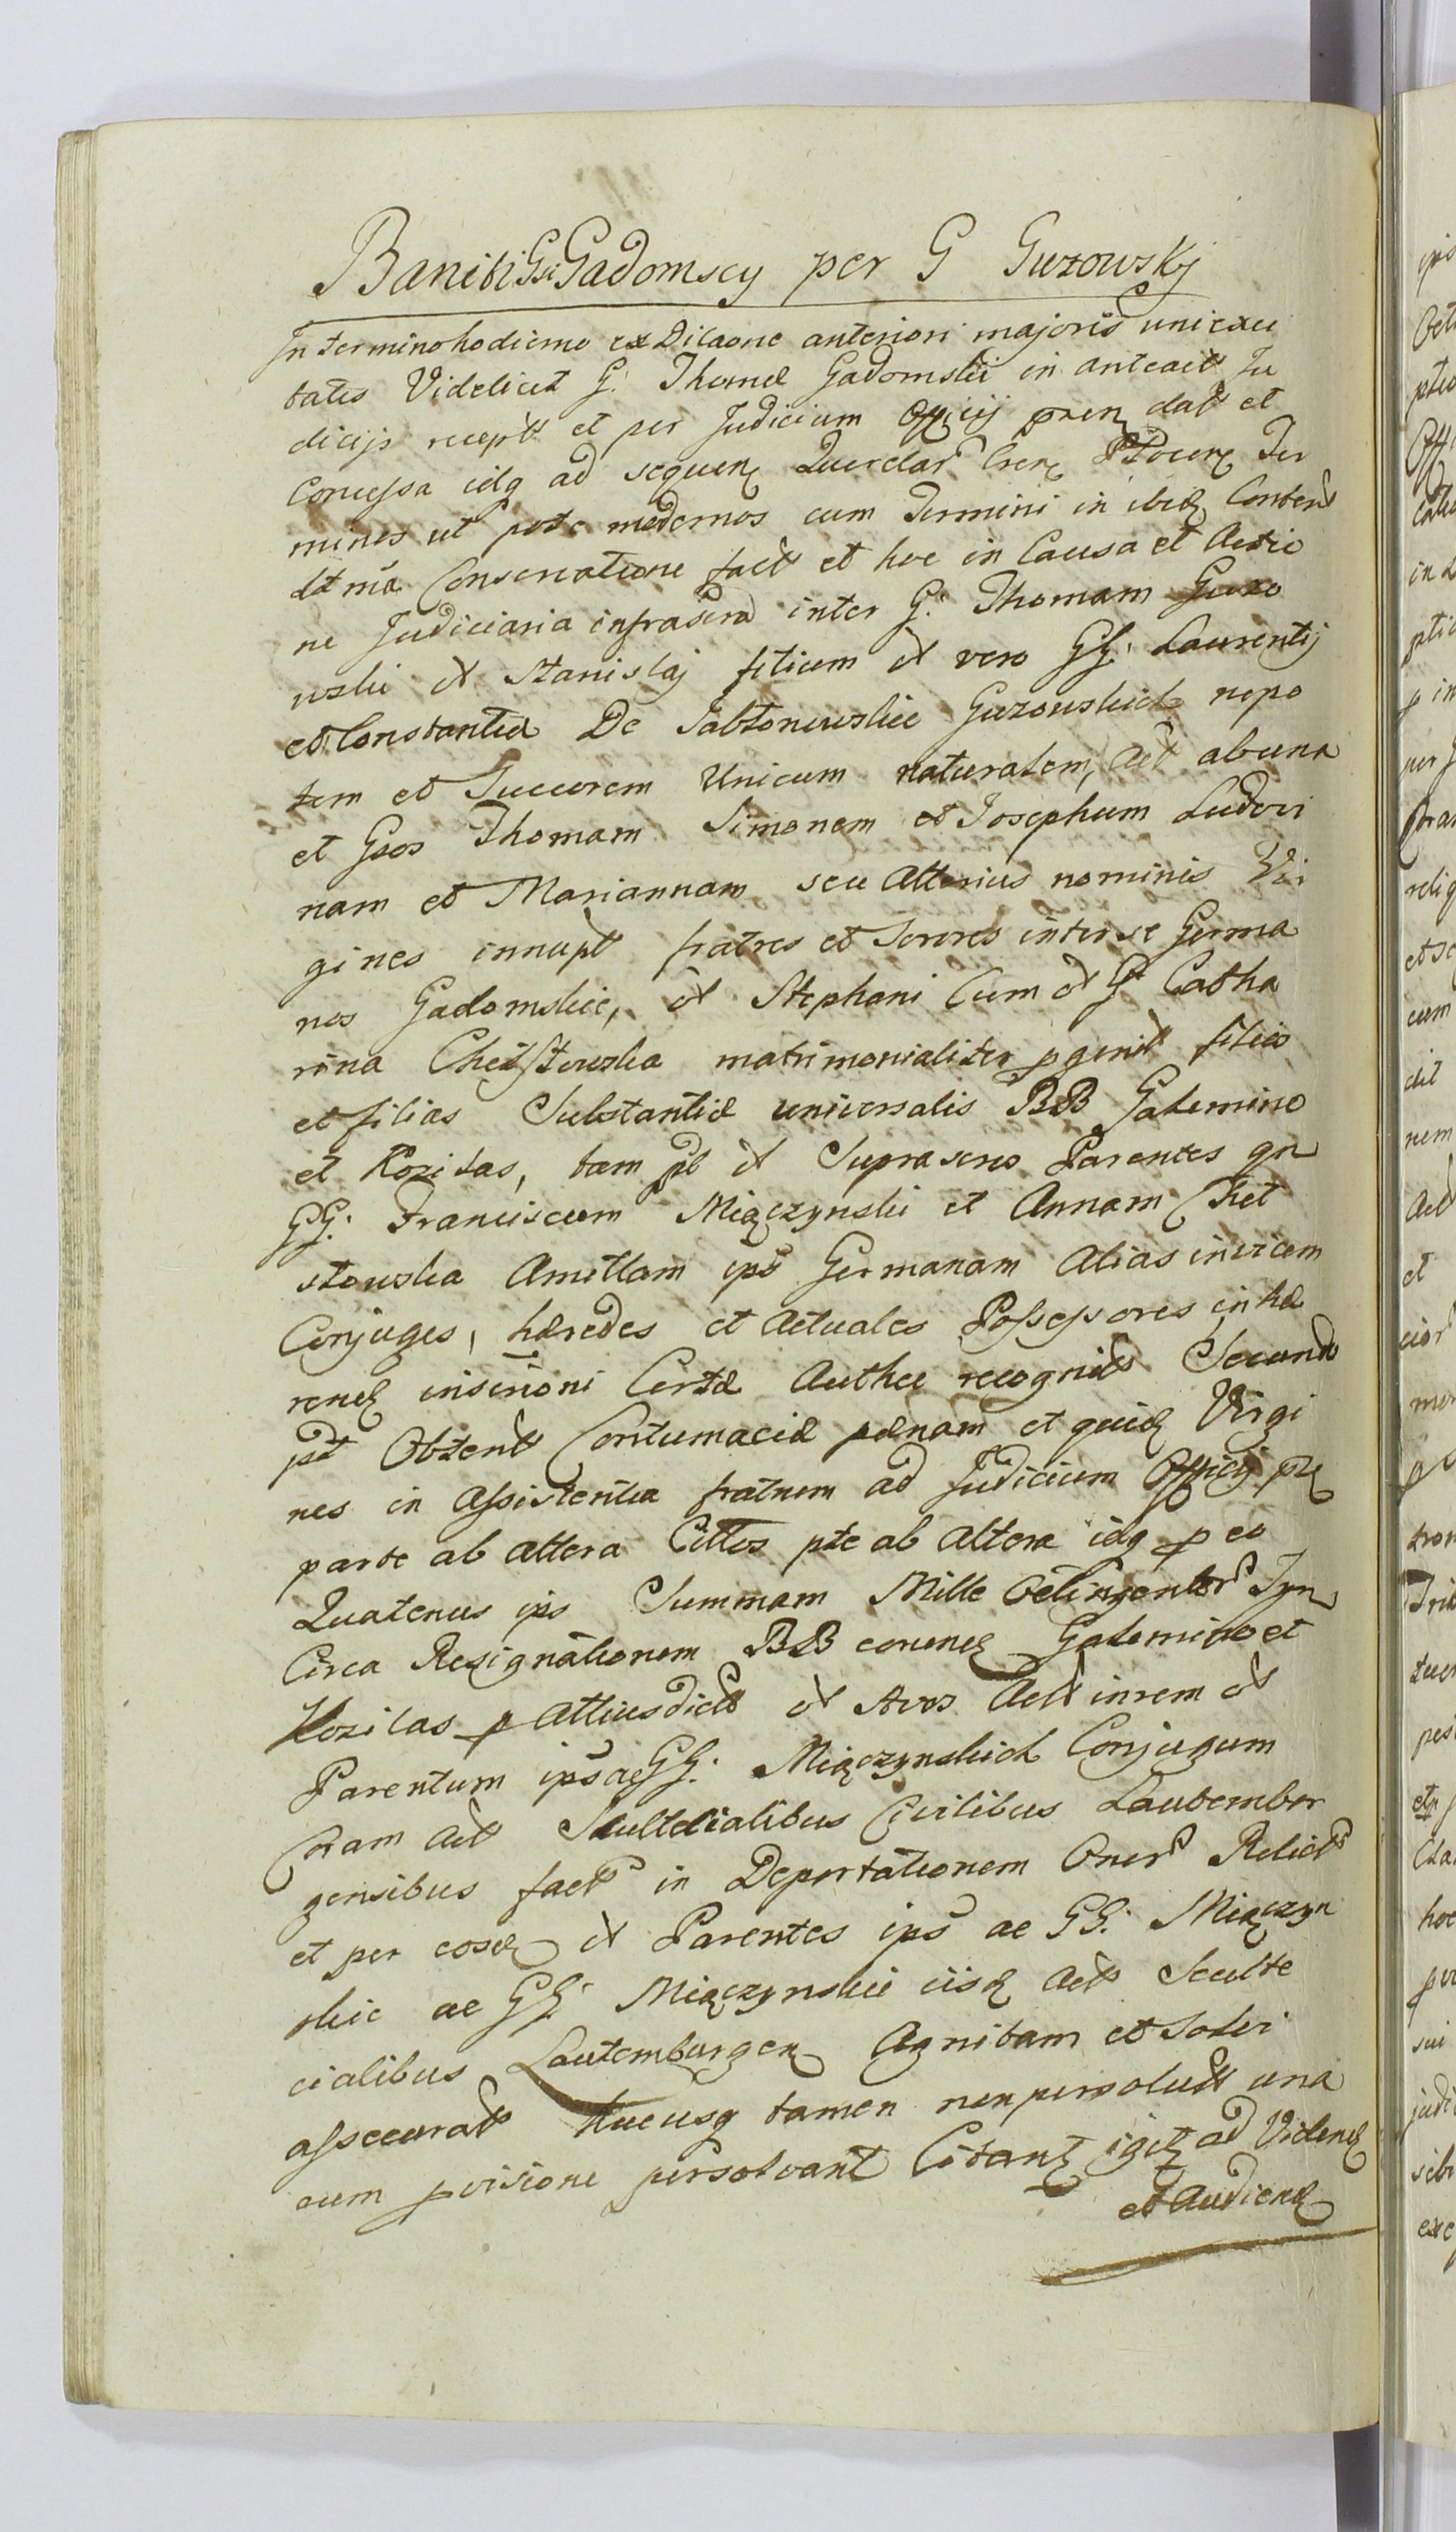 Baniti Gsi Gadomscy per G Guzowskj
In termino hodierno ex Dilaone anteriori majoris unicae
tatis Videlicet G. Thomae Gadomski in anteact Ju
dicijs recept et per Judicium Officij pren dat et
Concessa idq ad sequen Querelar Cren Plocen Ter
minos ut pote modernos cum Termini in ibid Content
Conservatione fact et hoc in Causa et Actio
ne Judiciaria infrascra inter G. Thomam Guzo
wski ol Stanislaj filium ol vero GG. Laurentij
et Constantia De Jabłonowskie Guzowskich nepo
tem et Succorem Unicum naturalem, Act ab una
et Gsos Thomam Simonem et Josephum Ludovi
nam et Mariannam seu alterius nominis Vir
gines innupt fratres et Sorores inter se Germa
nos Gadomskie, ol Stephani cum ol G. Catha
rina Chełstowska matrimonialiter pgenit filios
et filias Substantiae universalis BB Galemino
et Kozilas, tam pt ol Suprascros Parentes qn
GG. Franciscum Miączynski et Annam Chet
stowska Amittam ips Germanam Alias invicem
Conjuges, haeredes et Actuales Possessores inhae
rend inscrioni Certae Authce recognit Secundo
pt Obtent Contumaciae paenam et quid Virgi
nes in Assistentia fratrum ad Judicium Officij
parte ab altera Cittos pte ab Altera idq p eo
Quatenus ips Summam Mille Octingentor Tyn
Circa Resignationem BB eorund Galemino et
Kozilas p Attiusdict ol Avos Act in rem ol
Parentum ips ac GG. Miączynskich Conjugum
Coram Act Scultetialibus Civilibus Lautember
gensibus fact in Deportationem Oner Relict
et per eosd ol Parentes ips ac GG. Miączyn
skie ac GG. Miączynskie iisd Act Sculte
cialibus Lautemburgen Agnitam et Solvi
assecurat hucusq tamen non persolut una
cum pvisione persolvant Citant igit ad Videnđ
et Audienđ